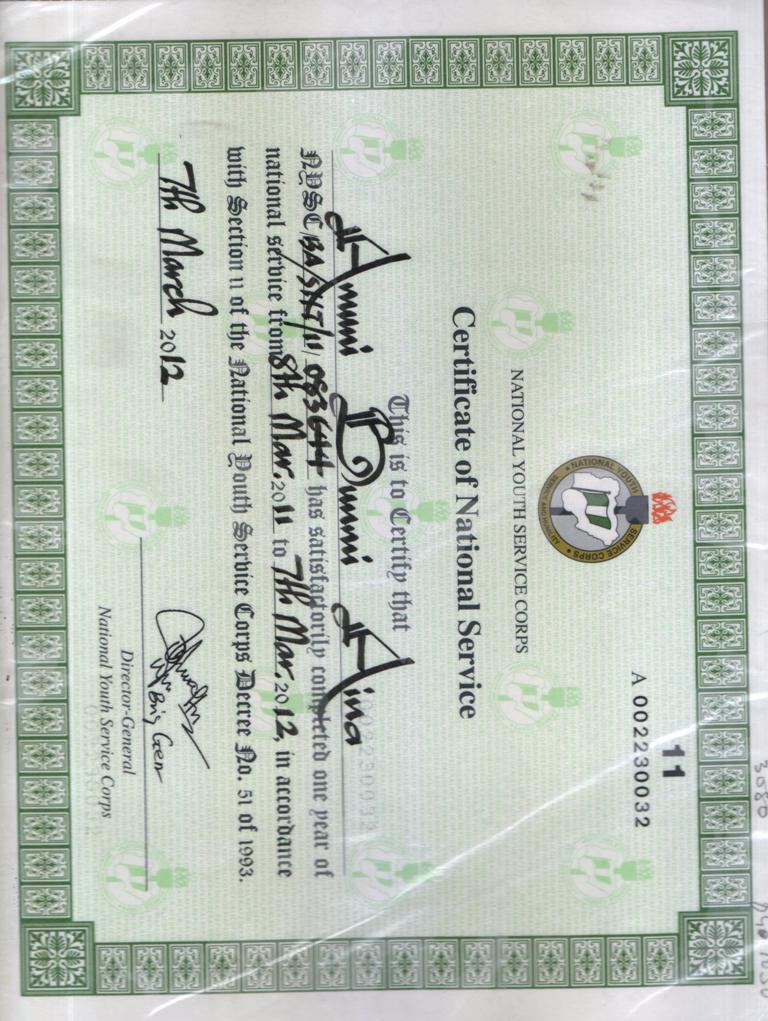 11
A 002230032
NATIONAL YOUTH SERVICE CORPS
NATIONAL YOUTH SERVICE CORPS
Certificate of National Service
This is to Certify that
Amuni Bunmi Aina
NYSC/BA/SXT/11/083644 has satisfactorily completed one year of
national service from 8th Mar. 2011 to 7th Mar. 2012, in accordance
with Section 11 of the National Youth Service Corps Decree No. 51 of 1993.
7th March 2012
Brig Gen
Director-General
National Youth Service Corps